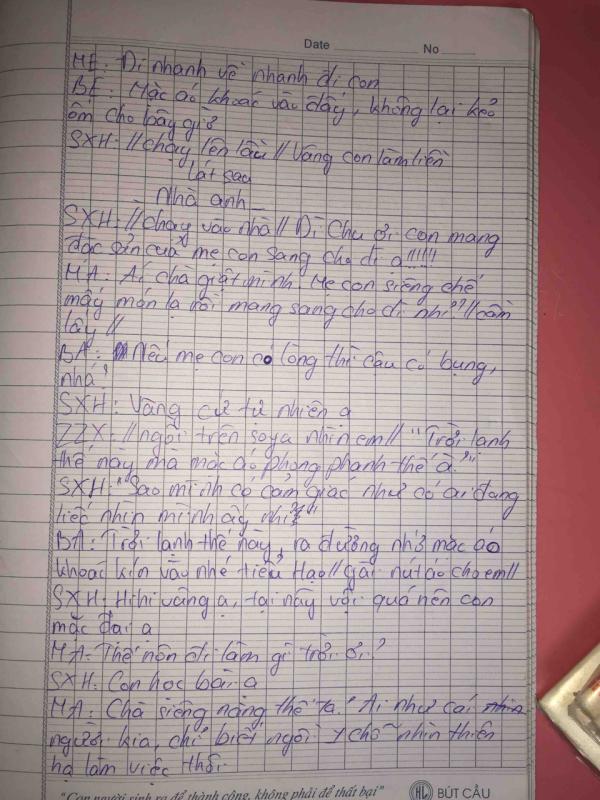 Date No
ME: Đi nhanh về nhanh đi con
BE: Mặc áo khoác vào đấy, không lại kẻo
ốm cho bây giờ
SXH: //chạy lên lầu// Vâng con làm liền
Lát sau
_ Nhà anh _
SXH: //chạy vào nhà// Dì Chu ơi con mang
đặc sản của mẹ con sang cho dì ạ!!!!!
MA: Ái chà giật mình. Mẹ con siêng chế
mấy món lạ rồi mang sang cho dì nhỉ? //cầm
lấy//
BA: Nếu mẹ con có lòng thì cậu có bụng,
nhá?
SXH: Vâng cứ tự nhiên ạ
ZZX: //ngồi trên soya nhìn em// "Trời lạnh
thế này mà mặc áo phong phanh thế à?"
SXH: "Sao mình có cảm giác như có ai đang
liếc nhìn mình ấy nhỉ?"
BA: Trời lạnh thế này, ra đường nhớ mặc áo
khoác kín vào nhé tiểu Hạo //gài nút áo cho em//
SXH: Hihi vâng ạ, tại nãy vội quá nên con
mặc đại ạ
MA: Thế nôn đi làm gì trời ơi?
SXH: Con học bài ạ
MA: Chà siêng năng thế ta. Ai như cái
người kia, chỉ biết ngồi 1 chỗ nhìn thiên
hạ làm việc thôi.
"Con người sinh ra để thành công, không phải để thất bại" HL BÚT CẦU